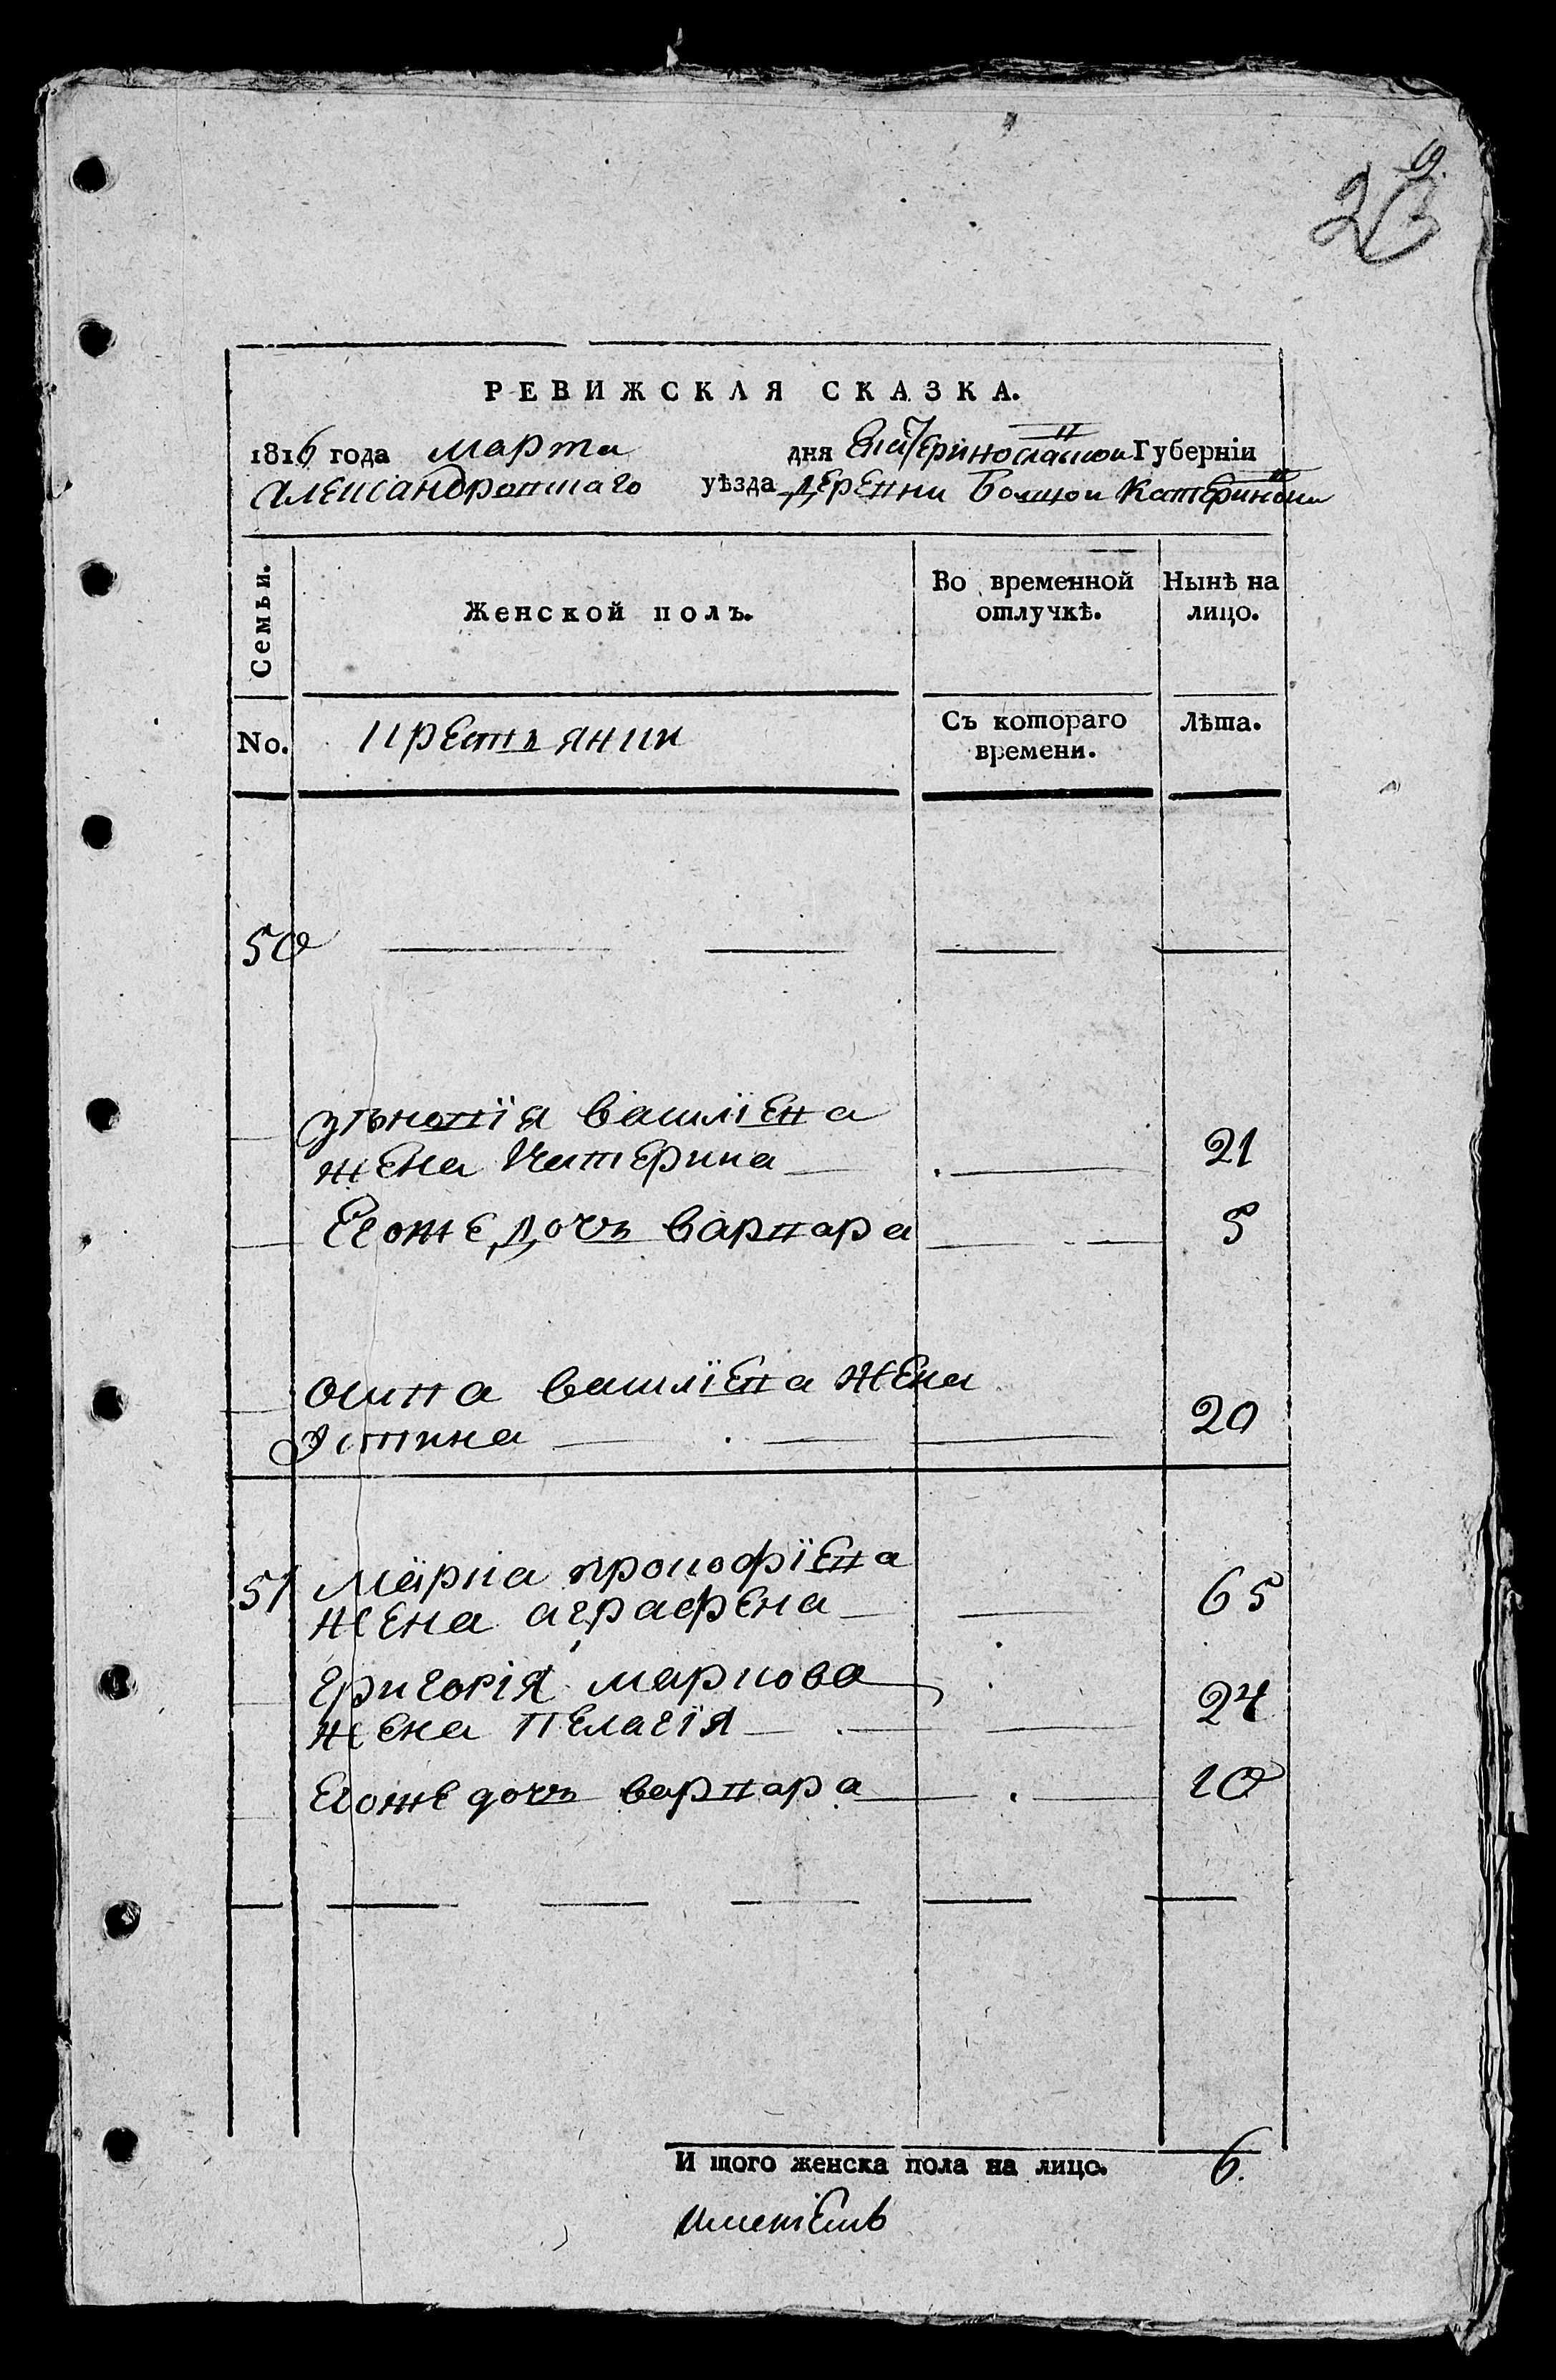 23
РЕВИЖСКАЯ СКАЗКА.
1816 года марта дня Екатеринославской Губерніи
Александровскаго уѣзда деревни Большой Катериновки
Семьи.
Женской полъ.
Во временной отлучкѣ.
Нынѣ на лицо.
No.
крестьянки
Съ котораго времени.
Лѣта.
50
зѣновїя васил‍їева
жена Катерина 21
Егоже дочь варвара 5
осипа василїева жена
устина 20
51 Марка прокофїева
жена аграфена 65
григорія маркова
жена пелагїя 24
Егоже дочь варвара 10
И того женска пола на лицо. 6.